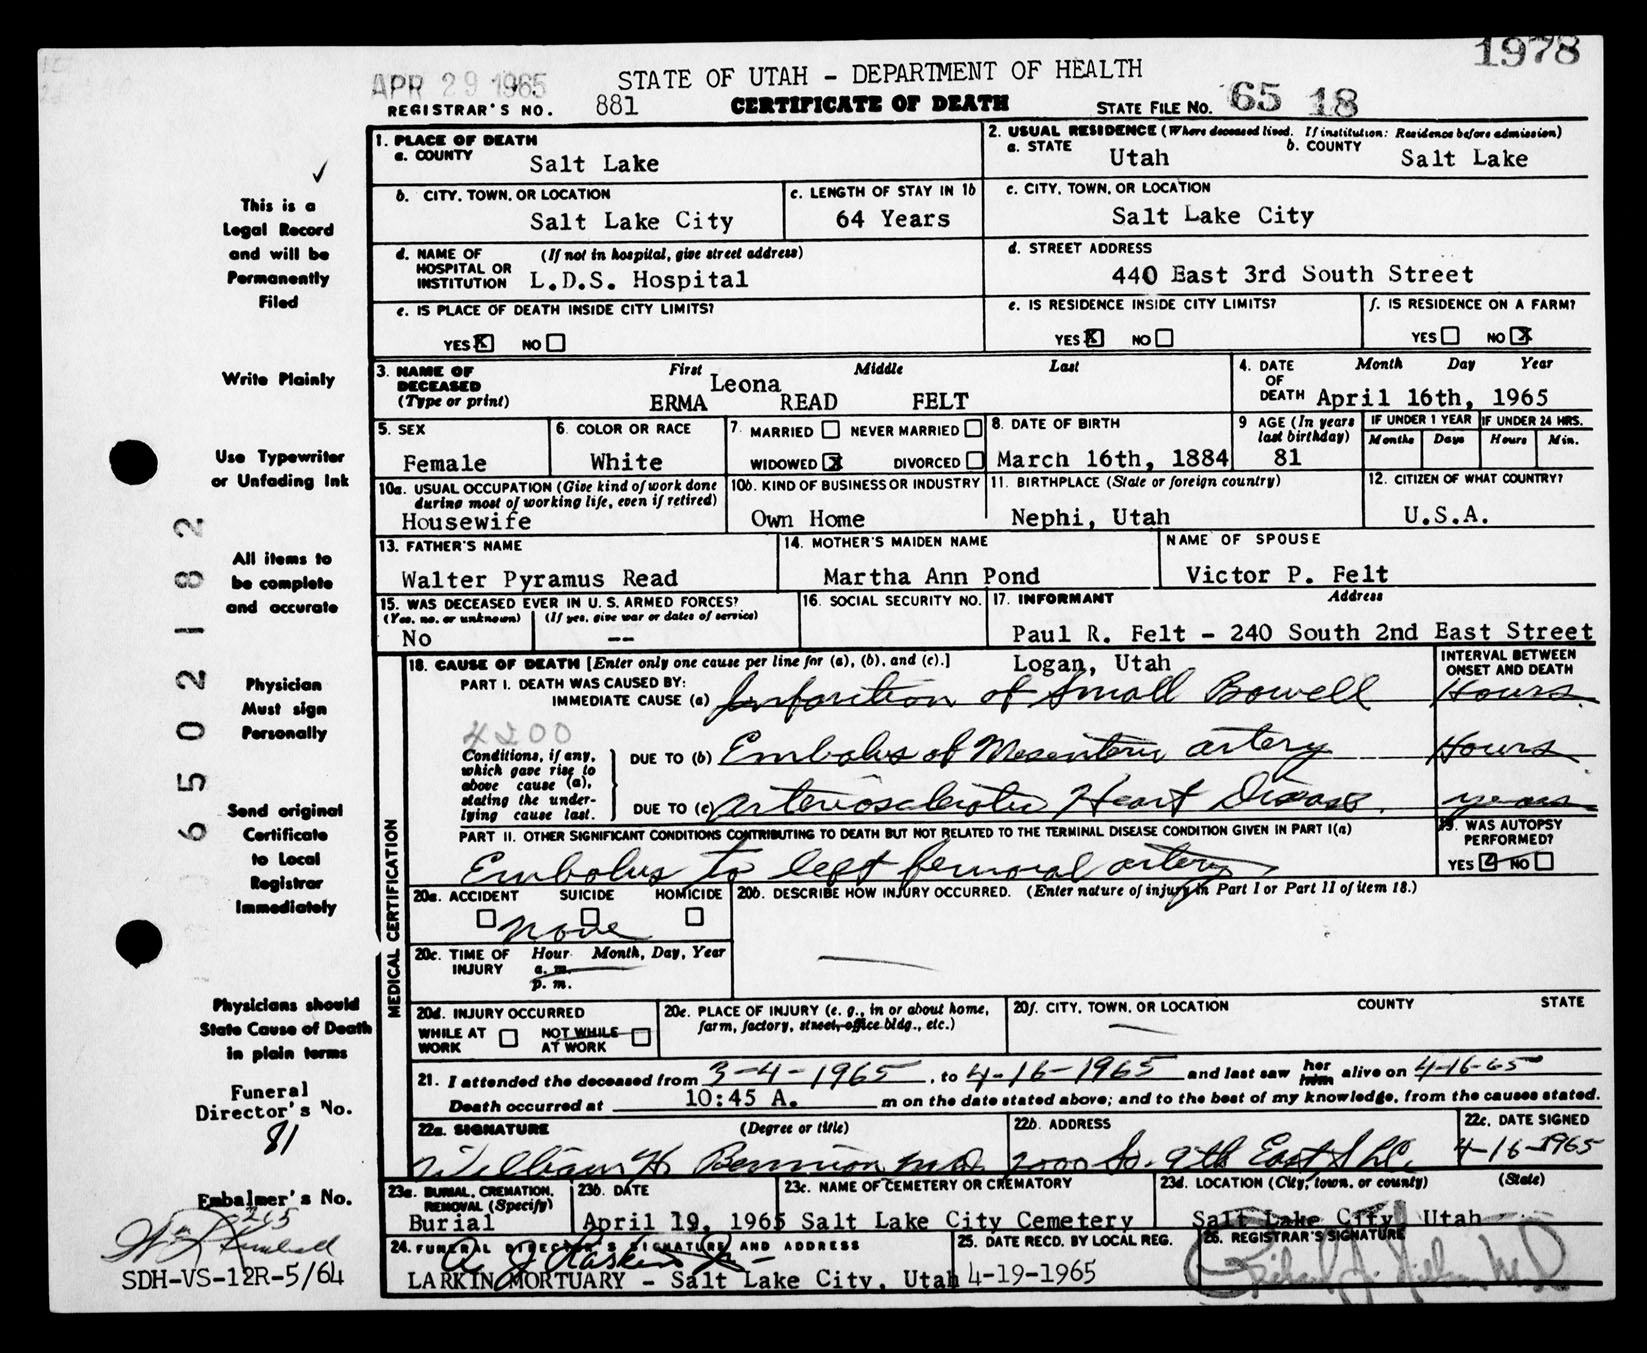 1978
APR 29 1965
STATE OF UTAH - DEPARTMENT OF HEALTH
REGISTRAR'S NO. 881 CERTIFICATE OF DEATH STATE FILE NO. 65 18
1. PLACE OF DEATH
a. COUNTY Salt Lake
2. USUAL RESIDENCE (Where deceased lived. If institution: Residence before admission)
a. STATE Utah b. COUNTY Salt Lake
b. CITY, TOWN, OR LOCATION Salt Lake City
c. LENGTH OF STAY IN 1b 64 Years
c. CITY, TOWN, OR LOCATION Salt Lake City
d. NAME OF HOSPITAL OR INSTITUTION (If not in hospital, give street address) L.D.S. Hospital
d. STREET ADDRESS 440 East 3rd South Street
e. IS PLACE OF DEATH INSIDE CITY LIMITS?
YES X NO
e. IS RESIDENCE INSIDE CITY LIMITS?
YES X NO
f. IS RESIDENCE ON A FARM?
YES NO X
3. NAME OF DECEASED (Type or print) First Middle Last
Leona
ERMA READ FELT
4. DATE OF DEATH Month Day Year
April 16th, 1965
5. SEX Female
6. COLOR OR RACE White
7. MARRIED NEVER MARRIED
WIDOWED X DIVORCED
8. DATE OF BIRTH March 16th, 1884
9 AGE (In years last birthday) 81
IF UNDER 1 YEAR Months Days
IF UNDER 24 HRS. Hours Min.
10a. USUAL OCCUPATION (Give kind of work done during most of working life, even if retired) Housewife
10b. KIND OF BUSINESS OR INDUSTRY Own Home
11. BIRTHPLACE (State or foreign country) Nephi, Utah
12. CITIZEN OF WHAT COUNTRY? U.S.A.
13. FATHER'S NAME Walter Pyramus Read
14. MOTHER'S MAIDEN NAME Martha Ann Pond
NAME OF SPOUSE Victor P. Felt
15. WAS DECEASED EVER IN U.S. ARMED FORCES?
(Yes, no, or unknown) (If yes, give war or dates of service)
No --
16. SOCIAL SECURITY NO.
17. INFORMANT Address
Paul R. Felt - 240 South 2nd East Street
Logan, Utah
18. CAUSE OF DEATH [Enter only one cause per line for (a), (b), and (c).]
INTERVAL BETWEEN ONSET AND DEATH
PART I. DEATH WAS CAUSED BY:
IMMEDIATE CAUSE (a) Infarction of Small Bowell Hours
4200
Conditions, if any, which gave rise to above cause (a), stating the underlying cause last.
DUE TO (b) Embolus of Mesenteric artery Hours
DUE TO (c) Arteriosclerotic Heart Disease. years
PART II. OTHER SIGNIFICANT CONDITIONS CONTRIBUTING TO DEATH BUT NOT RELATED TO THE TERMINAL DISEASE CONDITION GIVEN IN PART I(a)
Embolus to left femoral artery
19. WAS AUTOPSY PERFORMED?
YES NO
20a. ACCIDENT SUICIDE HOMICIDE
none
20b. DESCRIBE HOW INJURY OCCURRED. (Enter nature of injury in Part I or Part II of item 18.)
20c. TIME OF INJURY Hour Month, Day, Year
a. m.
p. m.
20d. INJURY OCCURRED
WHILE AT WORK NOT WHILE AT WORK
20e. PLACE OF INJURY (e. g., in or about home, farm, factory, street, office bldg., etc.)
20f. CITY, TOWN, OR LOCATION COUNTY STATE
21. I attended the deceased from 3-4-1965, to 4-16-1965 and last saw her him alive on 4-16-65
Death occurred at 10:45 A. m on the date stated above; and to the best of my knowledge, from the causes stated.
22a. SIGNATURE (Degree or title) William H Bennion M.D.
22b. ADDRESS 2000 So. 9th East, SLC.
22c. DATE SIGNED 4-16-1965
23a. BURIAL, CREMATION, REMOVAL (Specify) Burial
23b. DATE April 19, 1965
23c. NAME OF CEMETERY OR CREMATORY Salt Lake City Cemetery
23d. LOCATION (City, town, or county) (State)
Salt Lake City, Utah
24. FUNERAL DIRECTOR'S SIGNATURE AND ADDRESS
LARKIN MORTUARY - Salt Lake City, Utah
25. DATE RECD. BY LOCAL REG. 4-19-1965
26. REGISTRAR'S SIGNATURE
MEDICAL CERTIFICATION
This is a
Legal Record
and will be
Permanently
Filed
Write Plainly
Use Typewriter
or Unfading Ink
All items to
be complete
and accurate
Physician
Must sign
Personally
Send original
Certificate
to Local
Registrar
Immediately
Physicians should
State Cause of Death
in plain terms
Funeral
Director's No.
81
Embalmer's No.
265
SDH-VS-12R-5/64
65 02182